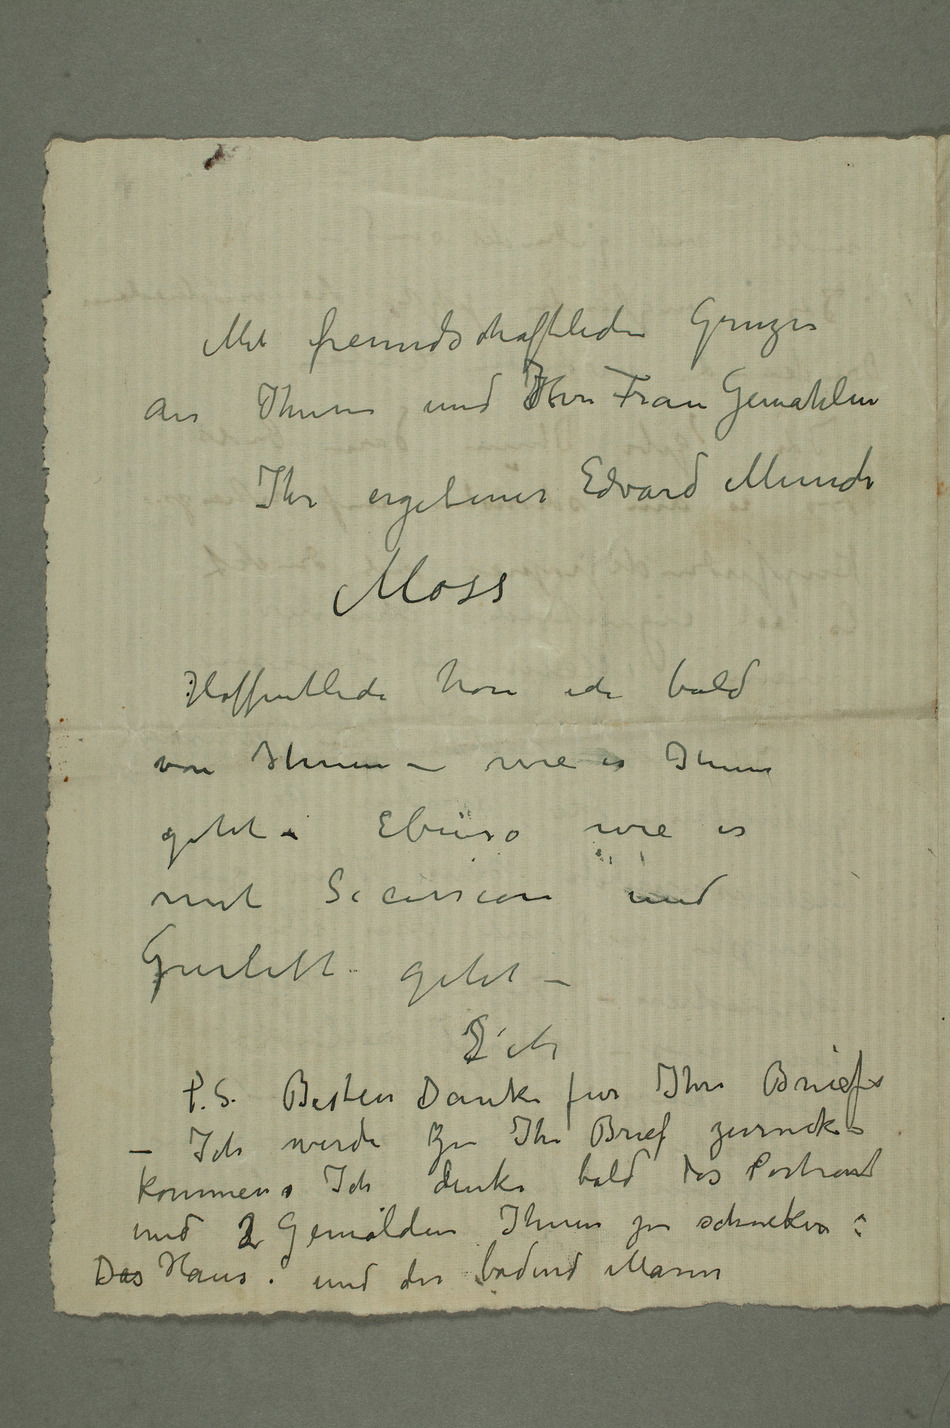 Mit freundschaftlichen Gruzen
an Ihnen und Ihre Frau Gemahlin
Ihr ergebener Edvard Munch
Moss
Hoffentlich höre ich bald
von Ihnen – wie es Ihnen
geht – Ebenso wie es
mit Secession und
Gurlitt geht –
P.S. Besten Dank für Ihre Briefe
– Ich werde zu Ihr Brief zurück
kommen. Ich denke bald das Portrait
und 2 Gemälden Ihnen zu schicken:
Das Haus. und der badend Mann